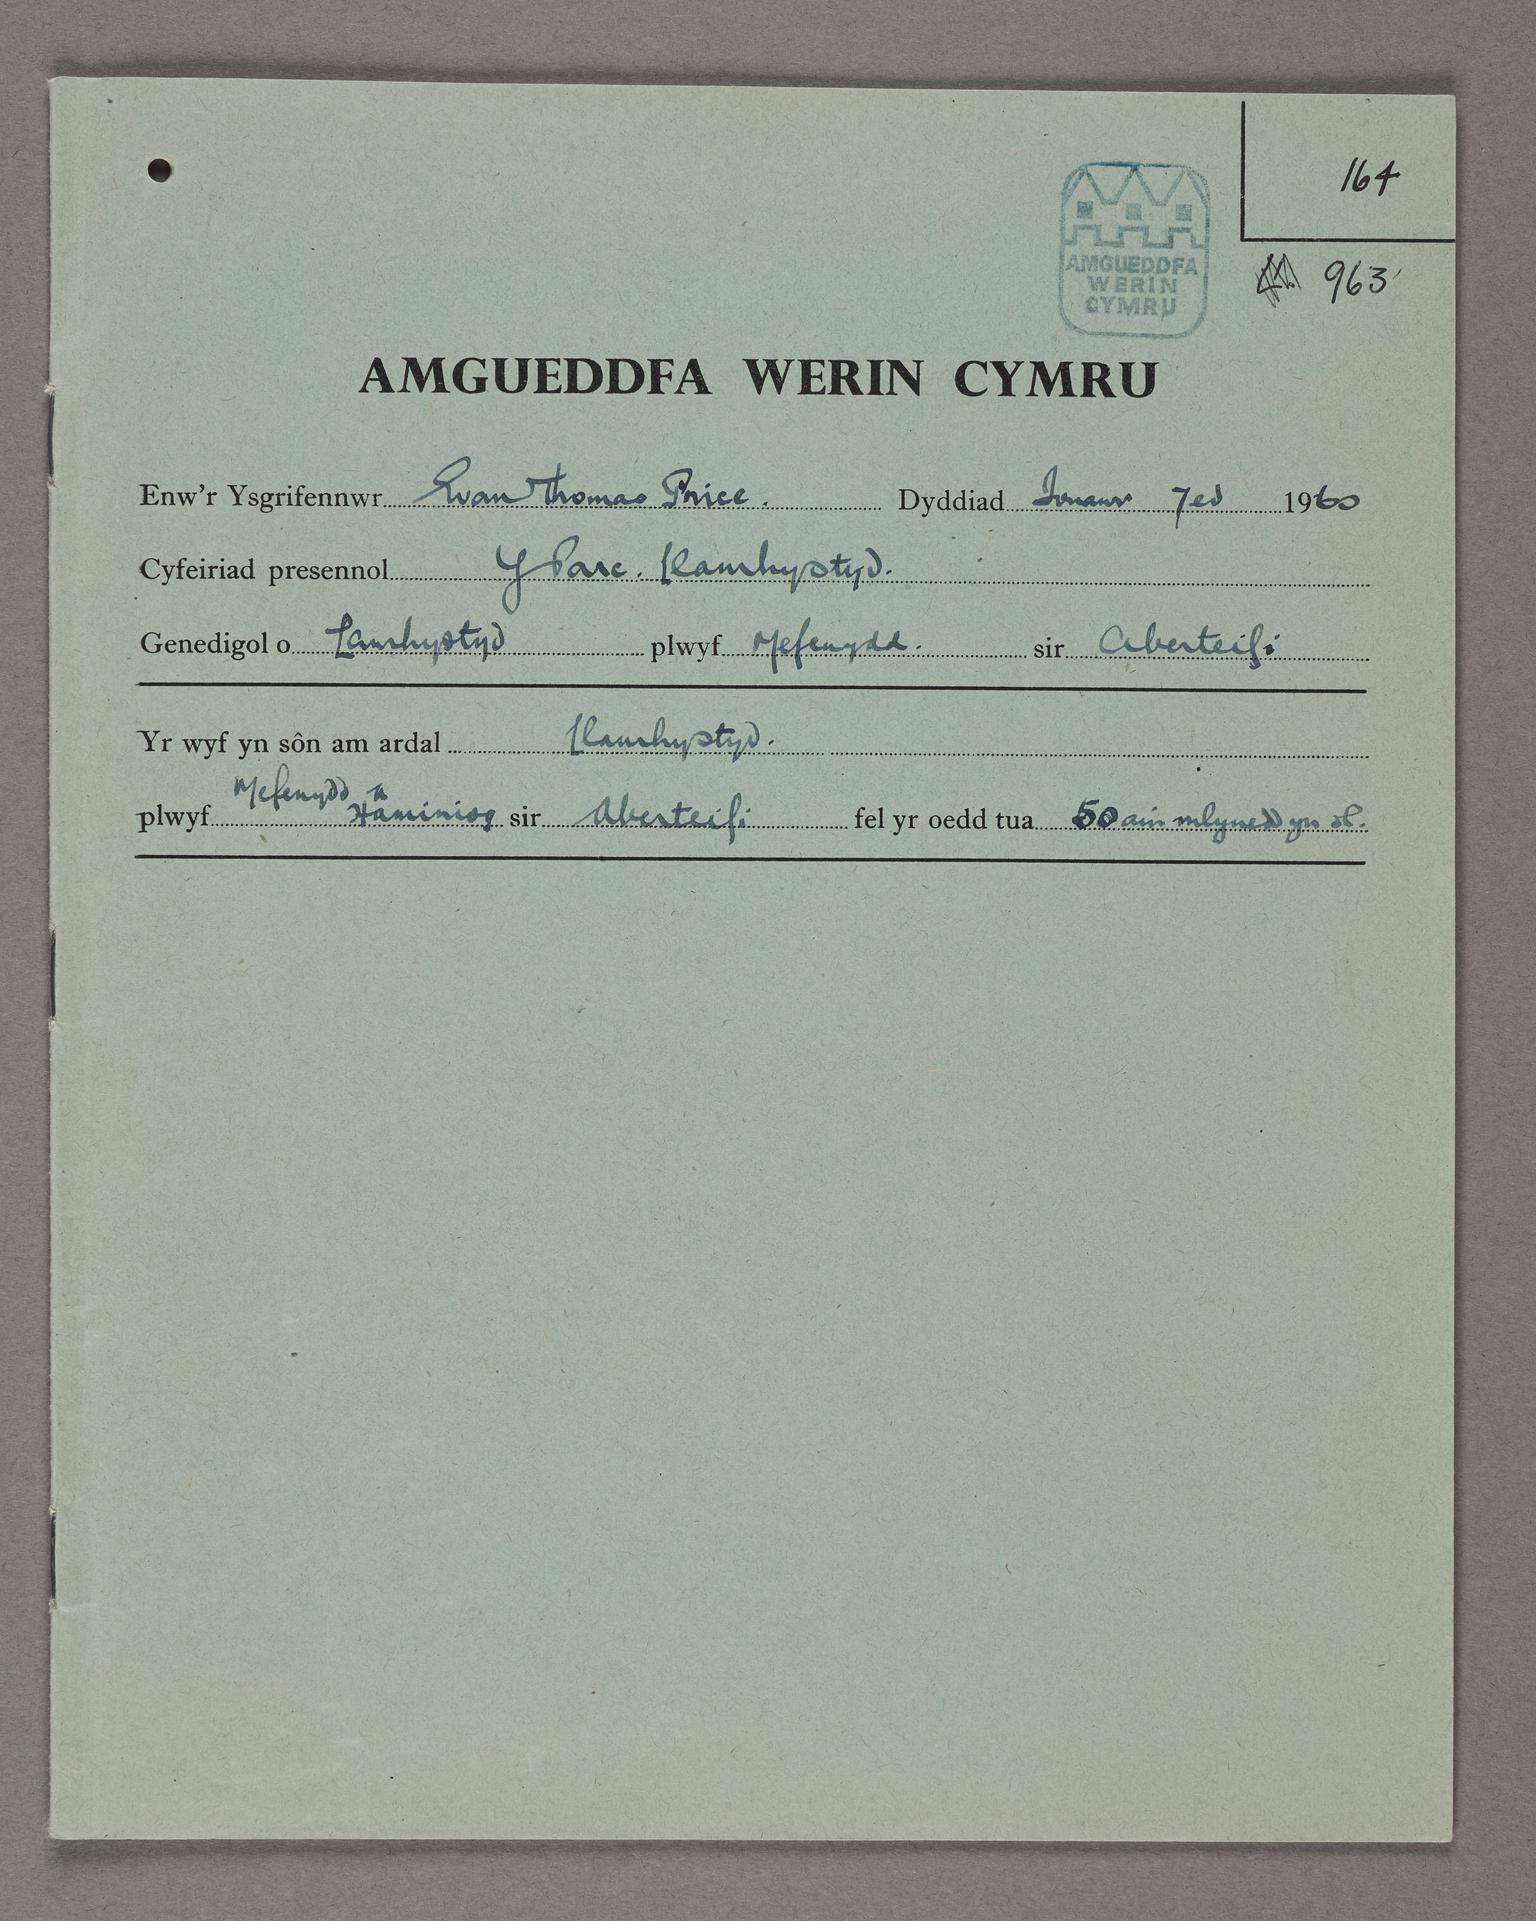 164
963
AMGUEDDFA
WERIN
CYMRU
AMGUEDDFA WERIN CYMRU
Enw'r Ysgrifennwr Evan Thomas Price. Dyddiad Ionawr 7ed 1960
Cyfeiriad presennol Y Parc. Llanrhystyd.
Genedigol o Llanrhystyd plwyf Mefenydd. sir Aberteifi
Yr wyf yn sôn am ardal Llanrhystyd.
plwyf Mefenydd a Haminiog sir Aberteifi fel yr oedd tua 50 ain mlynedd yn ol.